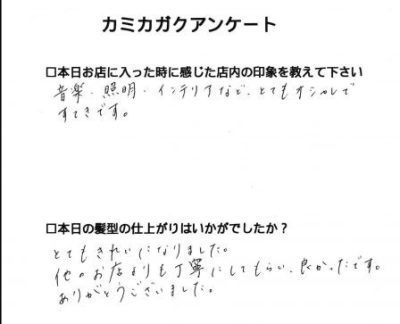 カミカガクアンケート
□本日お店に入った時に感じた店内の印象を教えて下さい
音楽・照明・インテリアなど、とてもオシャレで
すてきです。
□本日の髪型の仕上がりはいかがでしたか？
とてもきれいになりました。
他のお店よりも丁寧にしてもらい、良かったです。
ありがとうございました。